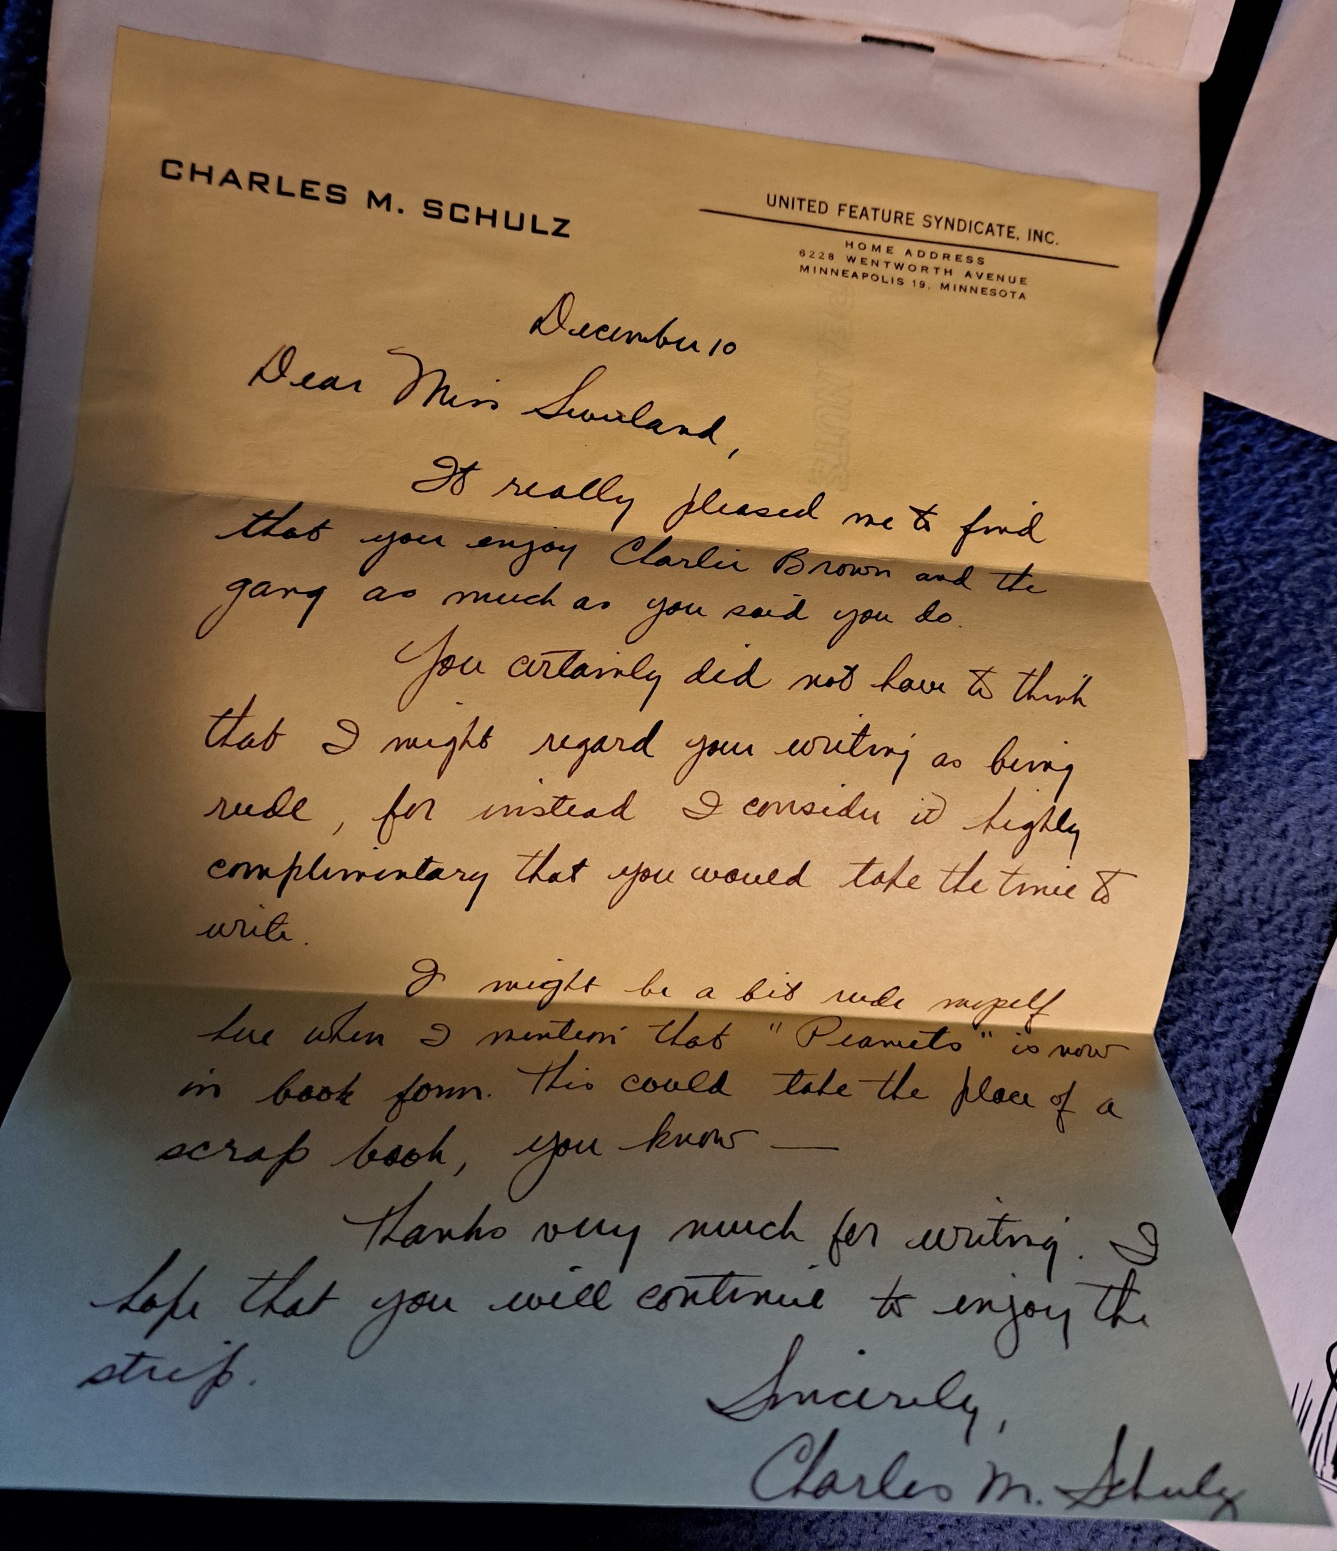 CHARLES M. SCHULZ
UNITED FEATURE SYNDICATE, INC.
HOME ADDRESS
6228 WENTWORTH AVENUE
MINNEAPOLIS 19, MINNESOTA
December 10
Dear Miss
It really pleased me to find
that you enjoy Charlie Brown and the
gang as much as you said you do.
You certainly did not have to think
that I might regard your writing as being
rude, for instead I consider it highly
complimentary that you would take the time to
write.
I might be a bit rude myself
here when I mention that "Peanuts" is now
in book form. This could take the place of a
scrap book, you know —
Thanks very much for writing. I
hope that you will continue to enjoy the
strip.
Sincerely,
Charles M. Schulz